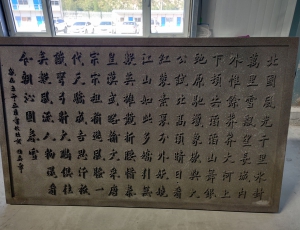 北國風光千里冰封
萬里雪飄望長城內
外惟餘莽莽大河上
下頓失滔滔山舞銀
蛇原馳蠟象欲與天
公試比高須晴日看
紅裝素裹分外妖嬈
江山如此多嬌引無
數英雄競折腰惜秦
皇漢武略輸文采唐
宗宋祖稍遜風騷一
代天驕成吉思汗
識彎弓射大雕俱往
矣數風流人物還看
今朝沁園春雪